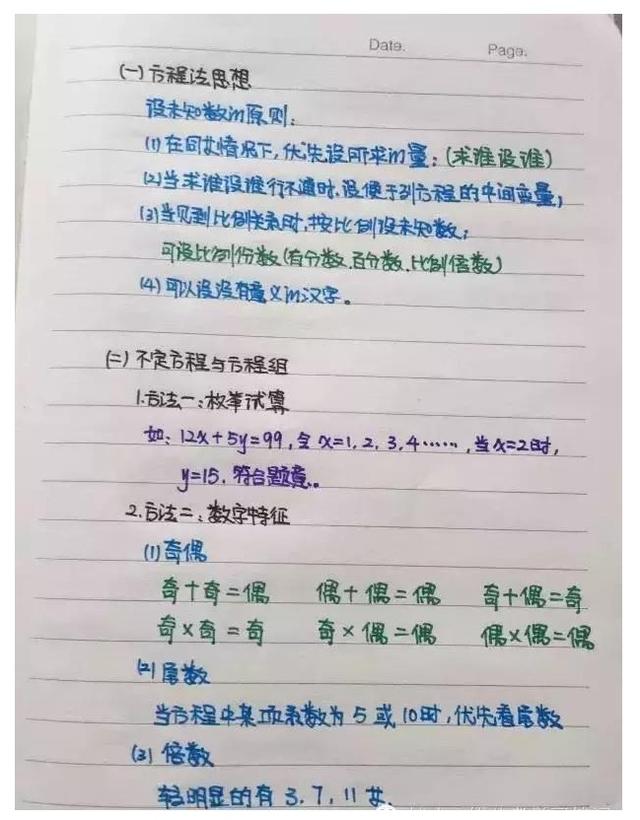 Date.
Page.
(一) 方程法思想
设未知数的原则:
(1) 在同等情况下,优先设所求的量; (求谁设谁)
(2) 当求谁设谁行不通时,设便于列方程的中间变量;
(3) 当见到比例关系时,按比例设未知数;
可设比例份数 (有分数、百分数、比例倍数)
(4) 可以设没有意义的汉字。
(二) 不定方程与方程组
1.方法一:枚举试算
如: 12x+5y=99, 令 x=1, 2, 3, 4……, 当x=2时,
y=15, 符合题意。
2.方法二:数字特征
(1) 奇偶
奇+奇=偶 偶+偶=偶 奇+偶=奇
奇×奇=奇 奇×偶=偶 偶×偶=偶
(2) 尾数
当方程中某项系数为 5 或 10时,优先看尾数
(3) 倍数
较明显的有 3, 7, 11 等